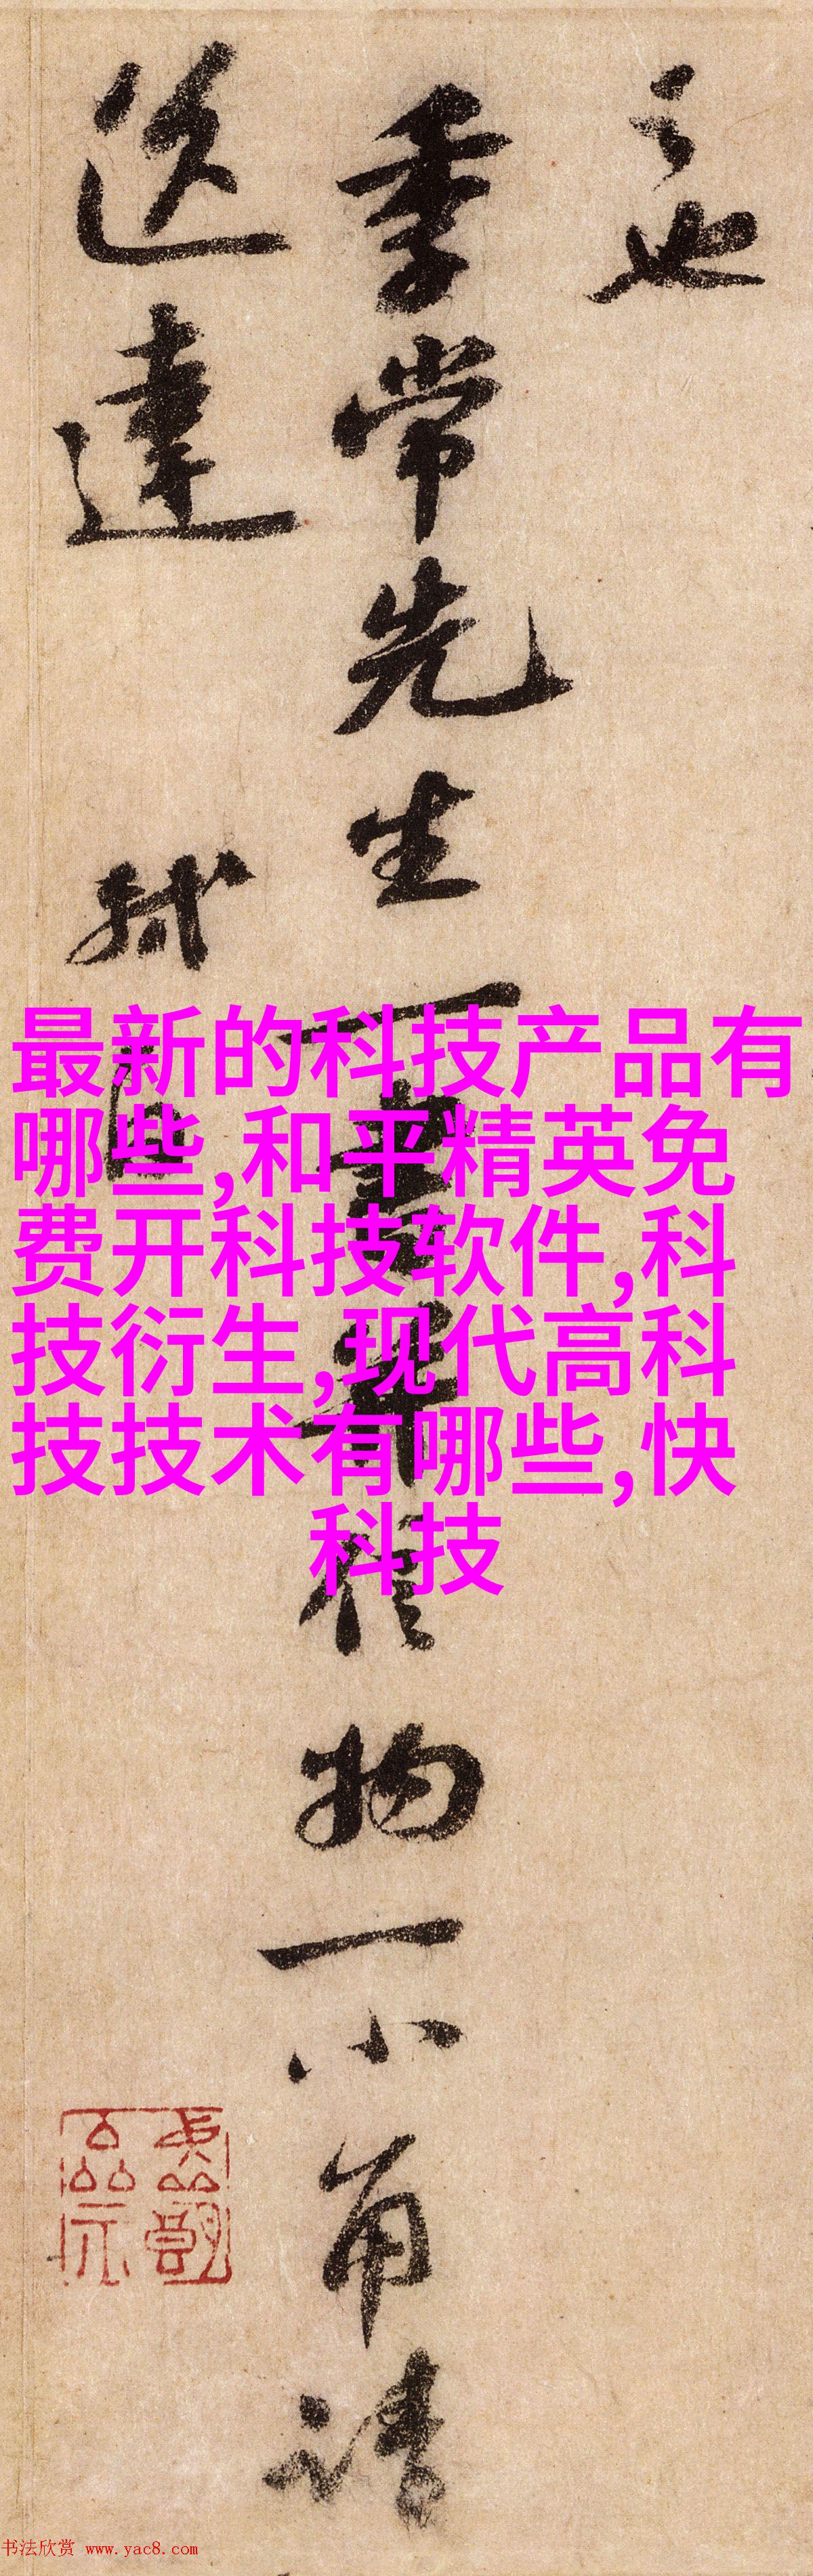 之也
季常先生一書并信物一小角請
送達 軾白
最新的科技产品有
哪些,和平精英免
费开科技软件,科
技衍生,现代高科
技技术有哪些,快
科技
书法欣赏 www.yac8.com